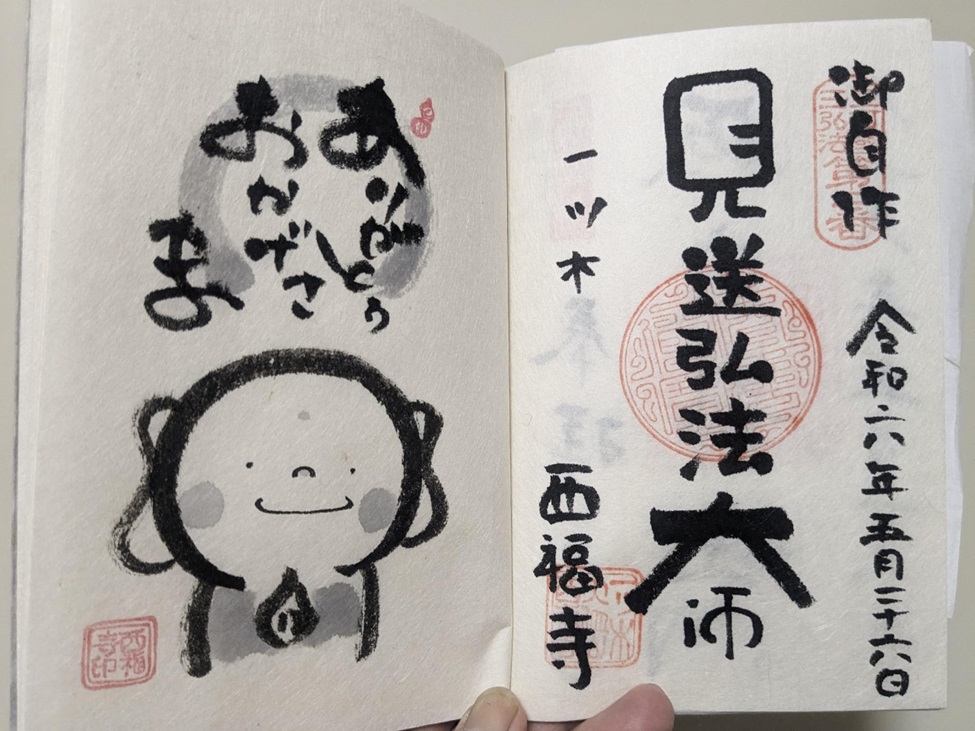 御自作
令和六年五月二十六日
見送弘法大師
一ツ木
西福寺
ありがとう
おかげさ
ま
西福
寺印